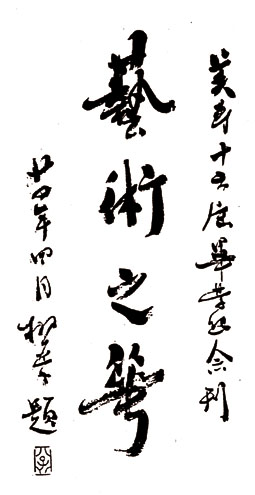 美專十五屆畢業紀念刊
藝術之華
廿四年四月柳亞子題